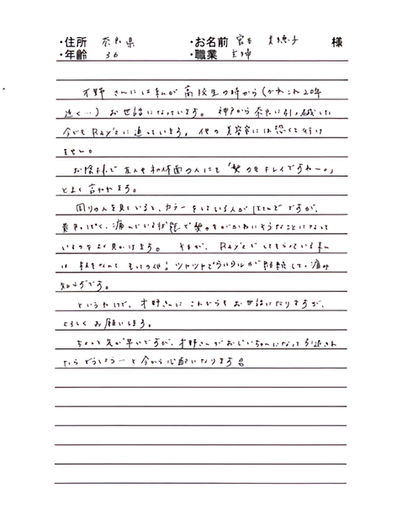 ・住所 奈良県 ・お名前 宮 子 様
・年齢 36 ・職業 主婦
才野さんには私が高校生の時から(かれこれ20年
近く…)お世話になっています。神戸から奈良に引っ越した
今でもRay'sに通っています。他の美容室には恐くて行け
ません。
お陰様で友人や初対面の人にも「髪の毛キレイですねー。」
とよく言われます。
周りの人を見ていると、カラーをしている人がほとんどですが、
痛んでいる状態で髪の毛がかわいそうなことになって
いるのをよく見かけます。 Ray'sでしてもらっている私
は ツヤツヤでうるうるが持続して、痛み
知らずです。
というわけで、才野さんにこれからもお世話になりますが、
よろしくお願いします。
ちょっと気が早いですが、才野さんがおじいちゃんになって引退され
たらどうしようーと今から心配になります